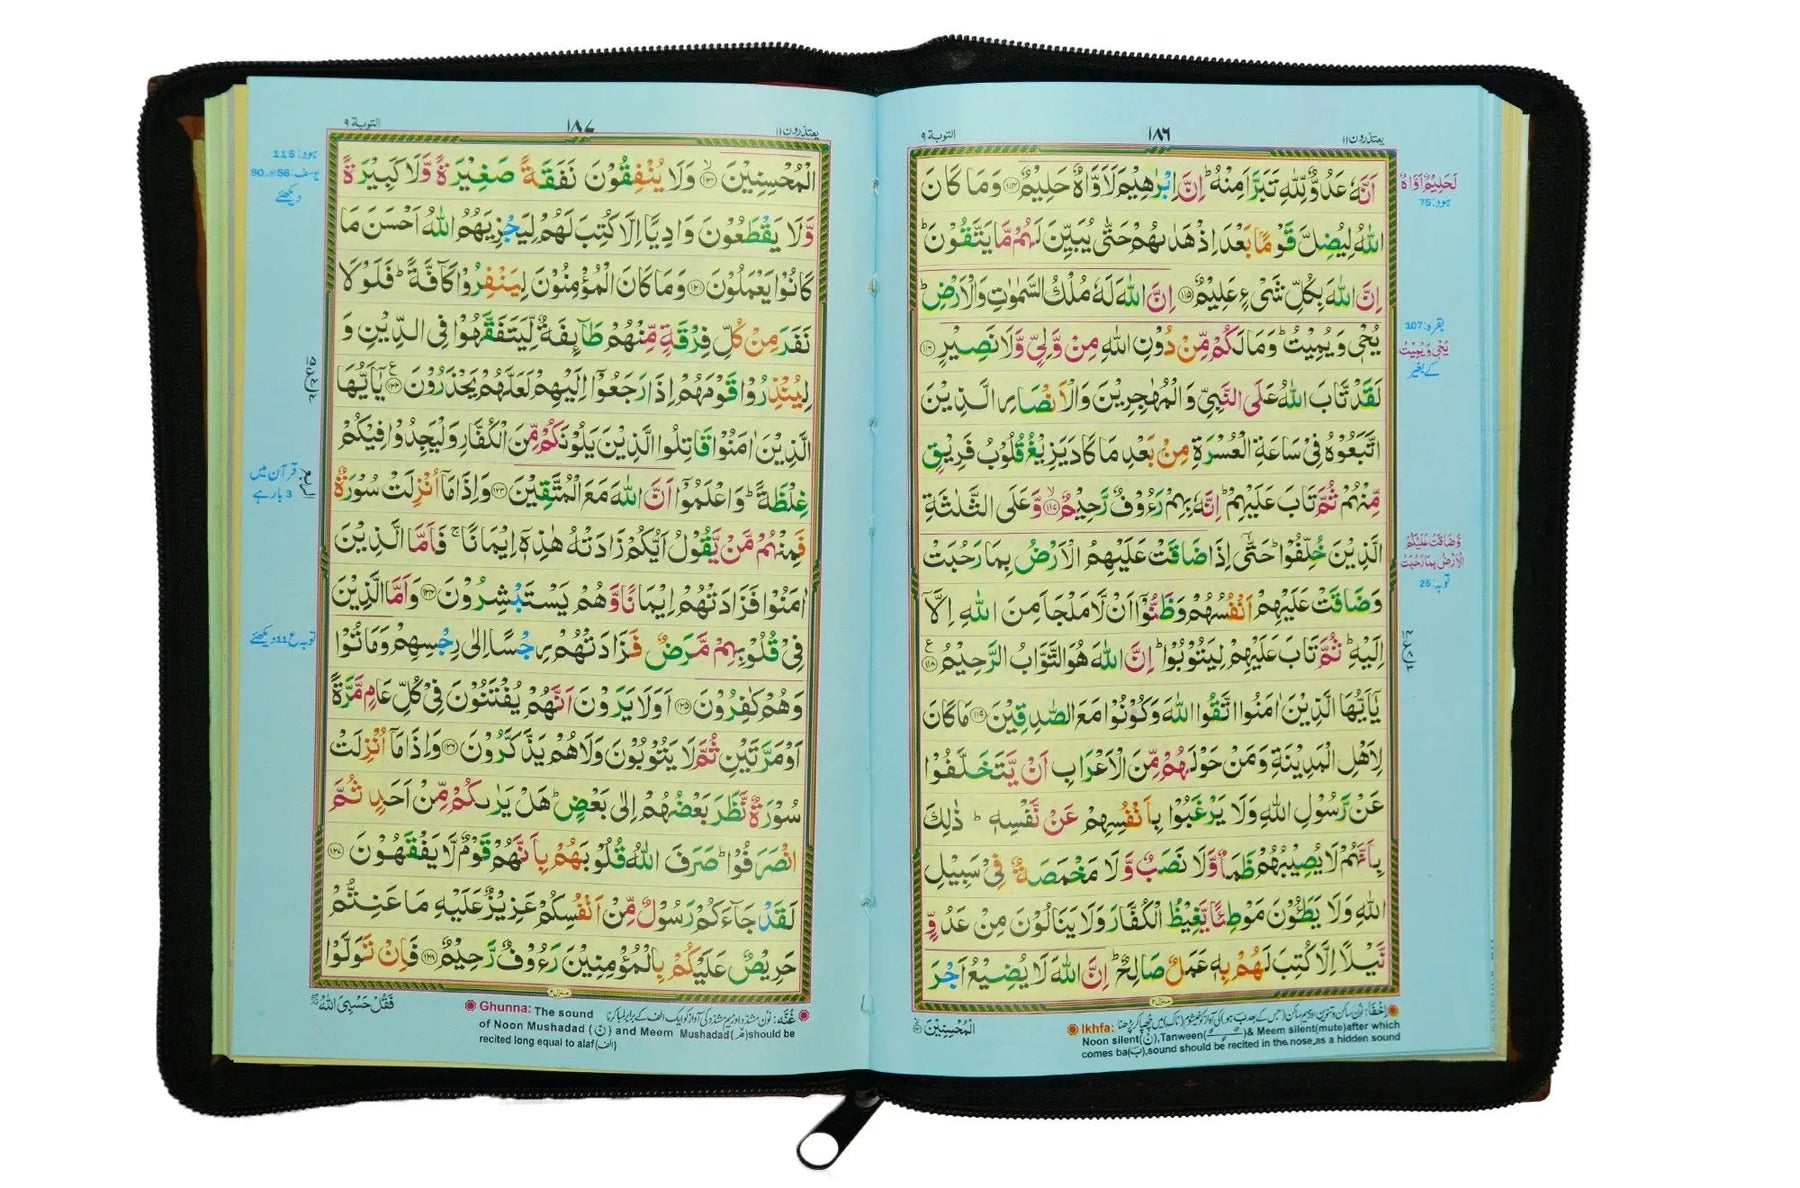 التوبة ٩
١٨٦
يعتذرون ١١
اَنَّهٗ عَدُوٌّ لِّلّٰهِ تَبَرَّاَ مِنْهُ ؕ اِنَّ اِبْرٰهِيْمَ لَاَوَّاهٌ حَلِيْمٌ ﴿۱۱۴﴾ وَمَا كَانَ
اللّٰهُ لِيُضِلَّ قَوْمًۢا بَعْدَ اِذْ هَدٰٮهُمْ حَتّٰى يُبَيِّنَ لَهُمْ مَّا يَتَّقُوْنَ ؕ
اِنَّ اللّٰهَ بِكُلِّ شَىْءٍ عَلِيْمٌ ﴿۱۱۵﴾ اِنَّ اللّٰهَ لَهٗ مُلْكُ السَّمٰوٰتِ وَالْاَرْضِ ؕ
يُحْىٖ وَيُمِيْتُ ؕ وَمَا لَكُمْ مِّنْ دُوْنِ اللّٰهِ مِنْ وَّلِىٍّ وَّلَا نَصِيْرٍ ﴿۱۱۶﴾
لَقَدْ تَّابَ اللّٰهُ عَلَى النَّبِىِّ وَالْمُهٰجِرِيْنَ وَالْاَنْصَارِ الَّذِيْنَ
اتَّبَعُوْهُ فِىْ سَاعَةِ الْعُسْرَةِ مِنْۢ بَعْدِ مَا كَادَ يَزِيْغُ قُلُوْبُ فَرِيْقٍ
مِّنْهُمْ ثُمَّ تَابَ عَلَيْهِمْ ؕ اِنَّهٗ بِهِمْ رَءُوْفٌ رَّحِيْمٌ ﴿۱۱۷﴾ۙ وَّعَلَى الثَّلٰثَةِ
الَّذِيْنَ خُلِّفُوْا ؕ حَتّٰۤى اِذَا ضَاقَتْ عَلَيْهِمُ الْاَرْضُ بِمَا رَحُبَتْ
وَضَاقَتْ عَلَيْهِمْ اَنْفُسُهُمْ وَظَنُّوْۤا اَنْ لَّا مَلْجَاَ مِنَ اللّٰهِ اِلَّاۤ
اِلَيْهِ ؕ ثُمَّ تَابَ عَلَيْهِمْ لِيَتُوْبُوْا ؕ اِنَّ اللّٰهَ هُوَ التَّوَّابُ الرَّحِيْمُ ﴿۱۱۸﴾
يٰۤاَيُّهَا الَّذِيْنَ اٰمَنُوا اتَّقُوا اللّٰهَ وَكُوْنُوْا مَعَ الصّٰدِقِيْنَ ﴿۱۱۹﴾ مَا كَانَ
لِاَهْلِ الْمَدِيْنَةِ وَمَنْ حَوْلَهُمْ مِّنَ الْاَعْرَابِ اَنْ يَّتَخَلَّفُوْا
عَنْ رَّسُوْلِ اللّٰهِ وَلَا يَرْغَبُوْا بِاَنْفُسِهِمْ عَنْ نَّفْسِهٖ ؕ ذٰلِكَ
بِاَنَّهُمْ لَا يُصِيْبُهُمْ ظَمَاٌ وَّلَا نَصَبٌ وَّلَا مَخْمَصَةٌ فِىْ سَبِيْلِ
اللّٰهِ وَلَا يَطَـُٔوْنَ مَوْطِئًا يَّغِيْظُ الْكُفَّارَ وَلَا يَنَالُوْنَ مِنْ عَدُوٍّ
نَّيْلًا اِلَّا كُتِبَ لَهُمْ بِهٖ عَمَلٌ صَالِحٌ ؕ اِنَّ اللّٰهَ لَا يُضِيْعُ اَجْرَ
الْمُحْسِنِيْنَ
لَحَلِيْمٌ اَوَّاهٌ
ہود: 75
بقرہ: 107
يُحْىٖ وَيُمِيْتُ
کے بغیر
وَّضَاقَتْ عَلَيْكُمُ
الْاَرْضُ بِمَا رَحُبَتْ
توبہ: 25
Ikhfa: Noon silent(نْ),Tanween & Meem silent(mute)after which
comes ba(ب),sound should be recited in the nose,as a hidden sound
التوبة ٩
١٨٧
يعتذرون ١١
الْمُحْسِنِيْنَ ﴿۱۲۰﴾ۙ وَلَا يُنْفِقُوْنَ نَفَقَةً صَغِيْرَةً وَّلَا كَبِيْرَةً
وَّلَا يَقْطَعُوْنَ وَادِيًا اِلَّا كُتِبَ لَهُمْ لِيَجْزِيَهُمُ اللّٰهُ اَحْسَنَ مَا
كَانُوْا يَعْمَلُوْنَ ﴿۱۲۱﴾ وَمَا كَانَ الْمُؤْمِنُوْنَ لِيَنْفِرُوْا كَآفَّةً ؕ فَلَوْلَا
نَفَرَ مِنْ كُلِّ فِرْقَةٍ مِّنْهُمْ طَآئِفَةٌ لِّيَتَفَقَّهُوْا فِى الدِّيْنِ وَ
لِيُنْذِرُوْا قَوْمَهُمْ اِذَا رَجَعُوْۤا اِلَيْهِمْ لَعَلَّهُمْ يَحْذَرُوْنَ ﴿۱۲۲﴾ يٰۤاَيُّهَا
الَّذِيْنَ اٰمَنُوْا قَاتِلُوا الَّذِيْنَ يَلُوْنَكُمْ مِّنَ الْكُفَّارِ وَلْيَجِدُوْا فِيْكُمْ
غِلْظَةً ؕ وَاعْلَمُوْۤا اَنَّ اللّٰهَ مَعَ الْمُتَّقِيْنَ ﴿۱۲۳﴾ وَاِذَا مَاۤ اُنْزِلَتْ سُوْرَةٌ
فَمِنْهُمْ مَّنْ يَّقُوْلُ اَيُّكُمْ زَادَتْهُ هٰذِهٖۤ اِيْمَانًا ۚ فَاَمَّا الَّذِيْنَ
اٰمَنُوْا فَزَادَتْهُمْ اِيْمَانًا وَّهُمْ يَسْتَبْشِرُوْنَ ﴿۱۲۴﴾ وَاَمَّا الَّذِيْنَ
فِىْ قُلُوْبِهِمْ مَّرَضٌ فَزَادَتْهُمْ رِجْسًا اِلٰى رِجْسِهِمْ وَمَاتُوْا
وَهُمْ كٰفِرُوْنَ ﴿۱۲۵﴾ اَوَلَا يَرَوْنَ اَنَّهُمْ يُفْتَنُوْنَ فِىْ كُلِّ عَامٍ مَّرَّةً
اَوْ مَرَّتَيْنِ ثُمَّ لَا يَتُوْبُوْنَ وَلَا هُمْ يَذَّكَّرُوْنَ ﴿۱۲۶﴾ وَاِذَا مَاۤ اُنْزِلَتْ
سُوْرَةٌ نَّظَرَ بَعْضُهُمْ اِلٰى بَعْضٍ ؕ هَلْ يَرٰٮكُمْ مِّنْ اَحَدٍ ثُمَّ
انْصَرَفُوْا ؕ صَرَفَ اللّٰهُ قُلُوْبَهُمْ بِاَنَّهُمْ قَوْمٌ لَّا يَفْقَهُوْنَ ﴿۱۲۷﴾
لَقَدْ جَآءَكُمْ رَسُوْلٌ مِّنْ اَنْفُسِكُمْ عَزِيْزٌ عَلَيْهِ مَا عَنِتُّمْ
حَرِيْصٌ عَلَيْكُمْ بِالْمُؤْمِنِيْنَ رَءُوْفٌ رَّحِيْمٌ ﴿۱۲۸﴾ فَاِنْ تَوَلَّوْا
فَقُلْ حَسْبِىَ اللّٰهُ
ہود: 115
یوسف: 56 اور 90
دیکھئے
قرآن میں
3 بار ہے
الربع
توبہ ع 11 دیکھئے
Ghunna: The sound
of Noon Mushadad (نّ) and Meem Mushadad(مّ)should be
recited long equal to alaf(الف)